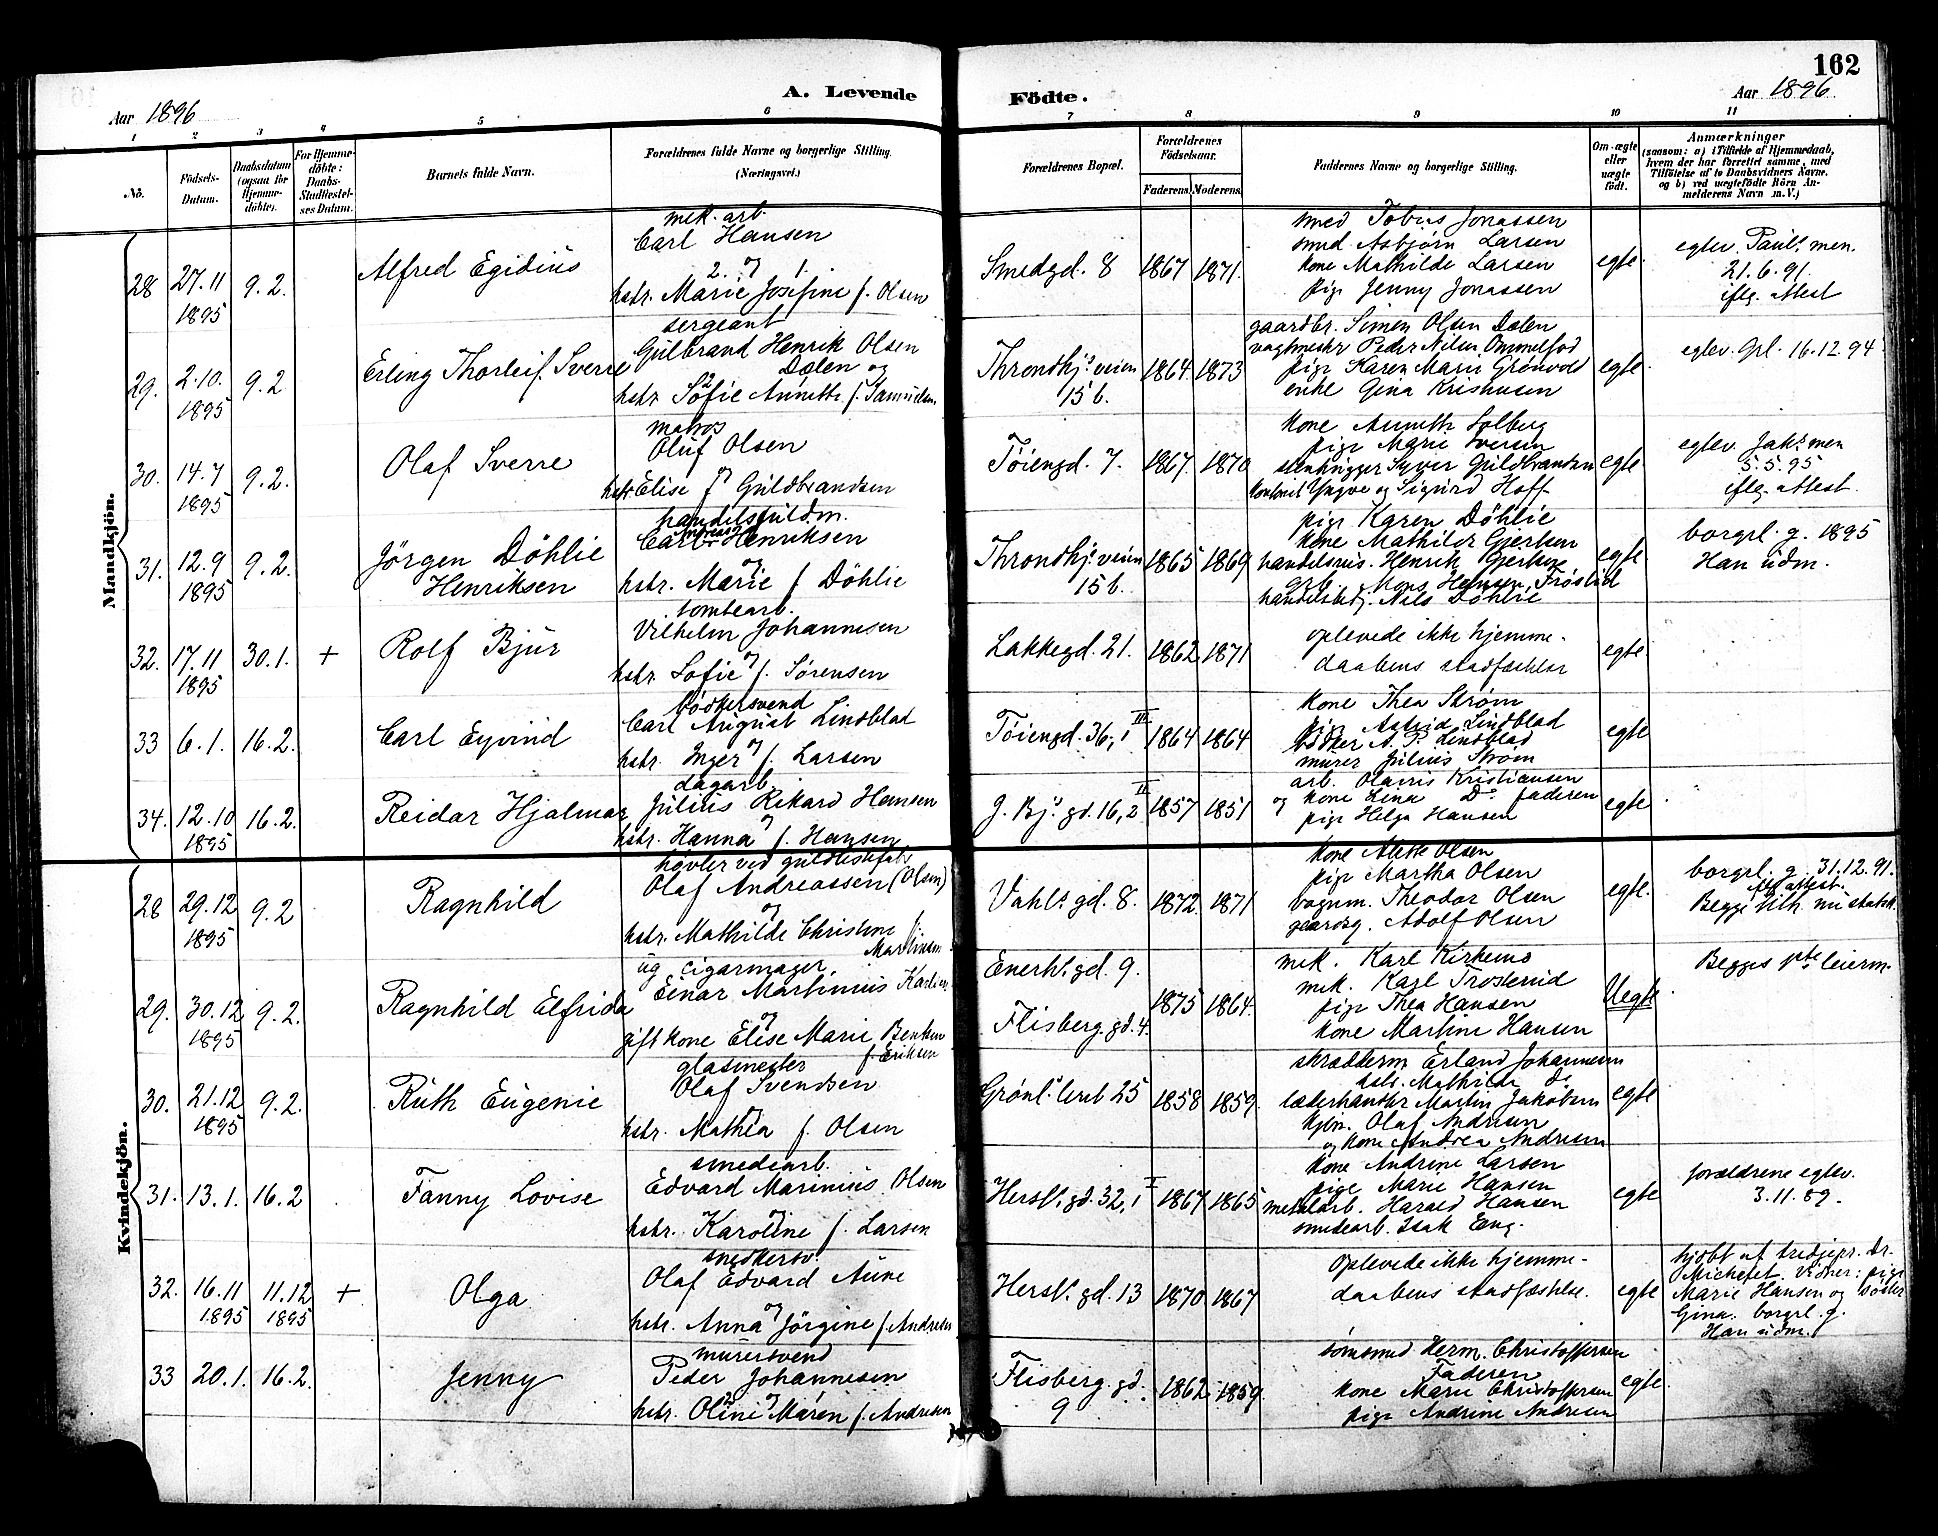 162
A. Levende Födte.
Aar 1896
Aar 1896.
1 2 3 4 5 6 7 8 9 10 11
No.
Födsels-
Datum.
Daabsdatum
(ogsaa for
Hjemme-
döbte).
For Hjemme-
döbte:
Daabs-
Stadfæstel-
ses Datum.
Barnets fulde Navn.
Forældrenes fulde Navne og borgerlige Stilling.
(Næringsvei.)
Forældrenes Bopæl.
Forældrenes
Födselsaar.
Faderens.
Moderens.
Faddernes Navne og borgerlige Stilling.
Om ægte
eller
uægte
födt.
Anmærkninger
(saasom: a) i Tilfælde af Hjemmedaab,
hvem der har forrettet samme, med
Tilföielse af to Daabsvidners Navne.
og b) ved uægtefödte Börn An-
melderens Navn m. V.)
Mandkjön.
28
27.11
1895
9.2.
Alfred Egidius
mek. arb.
Carl Hansen
2. og 1.
hstr. Marie Josefine f. Olsen
Smedgd. 8
1867
1871.
smed Tobias Jonassen
smed Asbjørn Larsen
kone Mathilde Larsen
pige Jenny Jonassen
egte.
egtev. Pauls men.
21.6.91.
iflg. attest
29.
2.10.
1895
9.2
Erling Thorleif Sverre
sergeant
Gulbrand Henrik Olsen
Dælen og
hstr. Sofie Annette f. Samuelsen
Throndhj.s veien
15 b.
1864.
1873
gaardbr. Simen Olsen Dælen
vagtmestr Peder Nilsen
pige Karen Marie Grönvold
enke Gina Kristiansen
egte.
egtev. Grl. 16.12.94
30.
14.7
1895
9.2.
Olaf Sverre
matros
Oluf Olsen
hstr Elise f. Guldbrandsen
Töiengd. 7.
1867.
1870
kone Annette Solberg
pige Marie Iversen
stenhugger Syver Guldbrandsen
kontorist Yngve og Sigurd Hoff
egte.
egtev. Jaks men
5.5.95
iflg. attest.
31.
12.9
1895
9.2.
Jörgen Döhlie
Henriksen
handelsfuldm.
Carl Henriksen
og
hstr. Marie f. Döhlie
Throndhj. veien
15 b.
1865
1869
pige Karen Döhlie
kone Mathilde Gjerksen
handelsreis. Henrik Gjerksen
arb. Mons Hansen Tröstad
handelsbetj. Nils Döhlie
egte
borgrl. g. 1895
Han udm.
32.
17.11
1895
30.1.
+
Rolf Bjur
tomtearb.
Vilhelm Johannesen
og
hstr. Sofie f. Sørensen
Lakkegd. 21.
1862
1871
oplevede ikke hjemme-
daabens stadfæstelse
egte.
33
6.1.
16.2.
Carl Eyvind
bödkersvend
Carl August Lindblad
og
hstr. Inger f. Larsen
Töiengd. 36, 1 III
1864
1864
kone Thea Strøm
pige Astrid Lindblad
bödker A. P. Lindblad
murer Julius Strøm
egte
34.
12.10
1895
16.2.
Reidar Hjalmar
dagarb.
Julius Rikard Hansen
og
hstr. Hanna f. Hansen
G. Bj.s gd. 16, 2 II
1857
1851
arb. Olavus Kristiansen
og kone Lina Do. faderen
pige Helga Hansen
egte
Kvindekjön.
28
29.12
1895
9.2
Ragnhild
høvler ved guldlistefabr.
Olaf Andreassen (Olsen)
og
hstr. Mathilde Christine f.
Martinsen
Vahls gd. 8.
1872.
1871
kone Alette Olsen
pige Martha Olsen
vognm. Theodor Olsen
gaardsg. Adolf Olsen
egte.
borgrl. g. 31.12.91.
iflg attest.
Begge tilh. nu statsk.
29.
30.12
1895
9.2.
Ragnhild Elfrida
ug cigarmager.
Einar Martinius Karlsen
og
gift kone Elise Marie Bentsen
f. Eriksen
Enerh.s gd. 9.
Flisberg. gd. 4.
1875
1864.
mek. Karl Kirkemo
mek. Karl Trosterud
pige Thea Hansen
kone Martine Hansen
Uegte
Begges 1ste leierm.
30.
21.12
1895
9.2.
Ruth Eugenie
glasmester
Olaf Svendsen
og
hstr. Mathea f. Olsen
Grönl.s leret 25
1858
1859.
skrædderm Erland Johannesen
hstr. Mathilde Do
læderhandler Martin Jakobsen
kjbm. Olaf Andresen
og kone Andrea Andresen
egte
31.
13.1.
16.2
Fanny Lovise
smedearb.
Edvard Marinius Olsen
og
hstr. Karoline f. Larsen
Hersl.s gd. 32, 1 I
1867
1865
kone Andrine Larsen
pige Marie Hansen
metalarb. Harald Hansen
smedearb. Isak Eng.
egte
forældrene egtev.
3.11.89.
32.
16.11
1895
11.12
1895
+
Olga
snedkersv.
Olaf Edvard Aune
og
hstr. Anna Jörgine f. Andresen
Hersl.s gd. 13
1870
1867
oplevede ikke hjemme-
daabens stadfæstelse.
egte
hjdbt af tredjepr. Dr.
Michelet. Vidner: pige
Marie Hansen og söster
Gina. borgrl. g.
Han udm.
33
20.1.
16.2.
Jenny
murersvend
Peder Johannesen
og
hstr. Oline Maren f. Andresen
Flisberg. gd.
9
1862
1859.
sømsmed Herm. Christoffersen
Faderen
kone Marie Christoffersen
pige Andrine Andresen
egte.